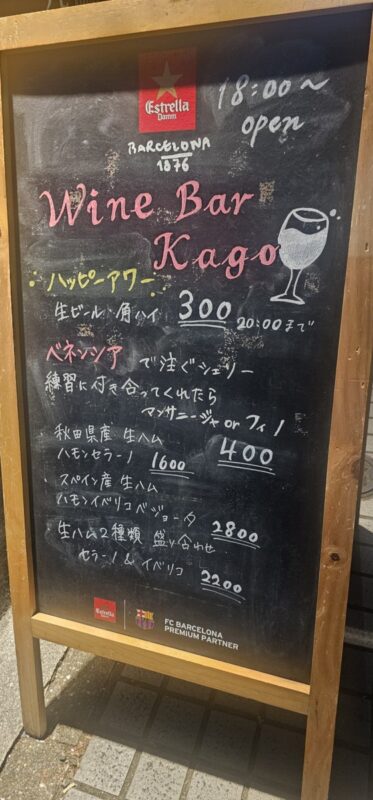 Estrella
Damm
BARCELONA
1876
18:00〜
open
Wine Bar
Kago
ハッピーアワー
生ビール・角ハイ 300 20:00まで
ベネンシア で注ぐシェリー
練習に付き合ってくれたら
マンサニージャ or フィノ
400
・秋田県産 生ハム
ハモンセラーノ 1600
・スペイン産 生ハム
ハモンイベリコベジョータ 2800
・生ハム2種類 盛り合わせ
セラーノ & イベリコ 2200
Estrella
Damm
FC BARCELONA
PREMIUM PARTNER